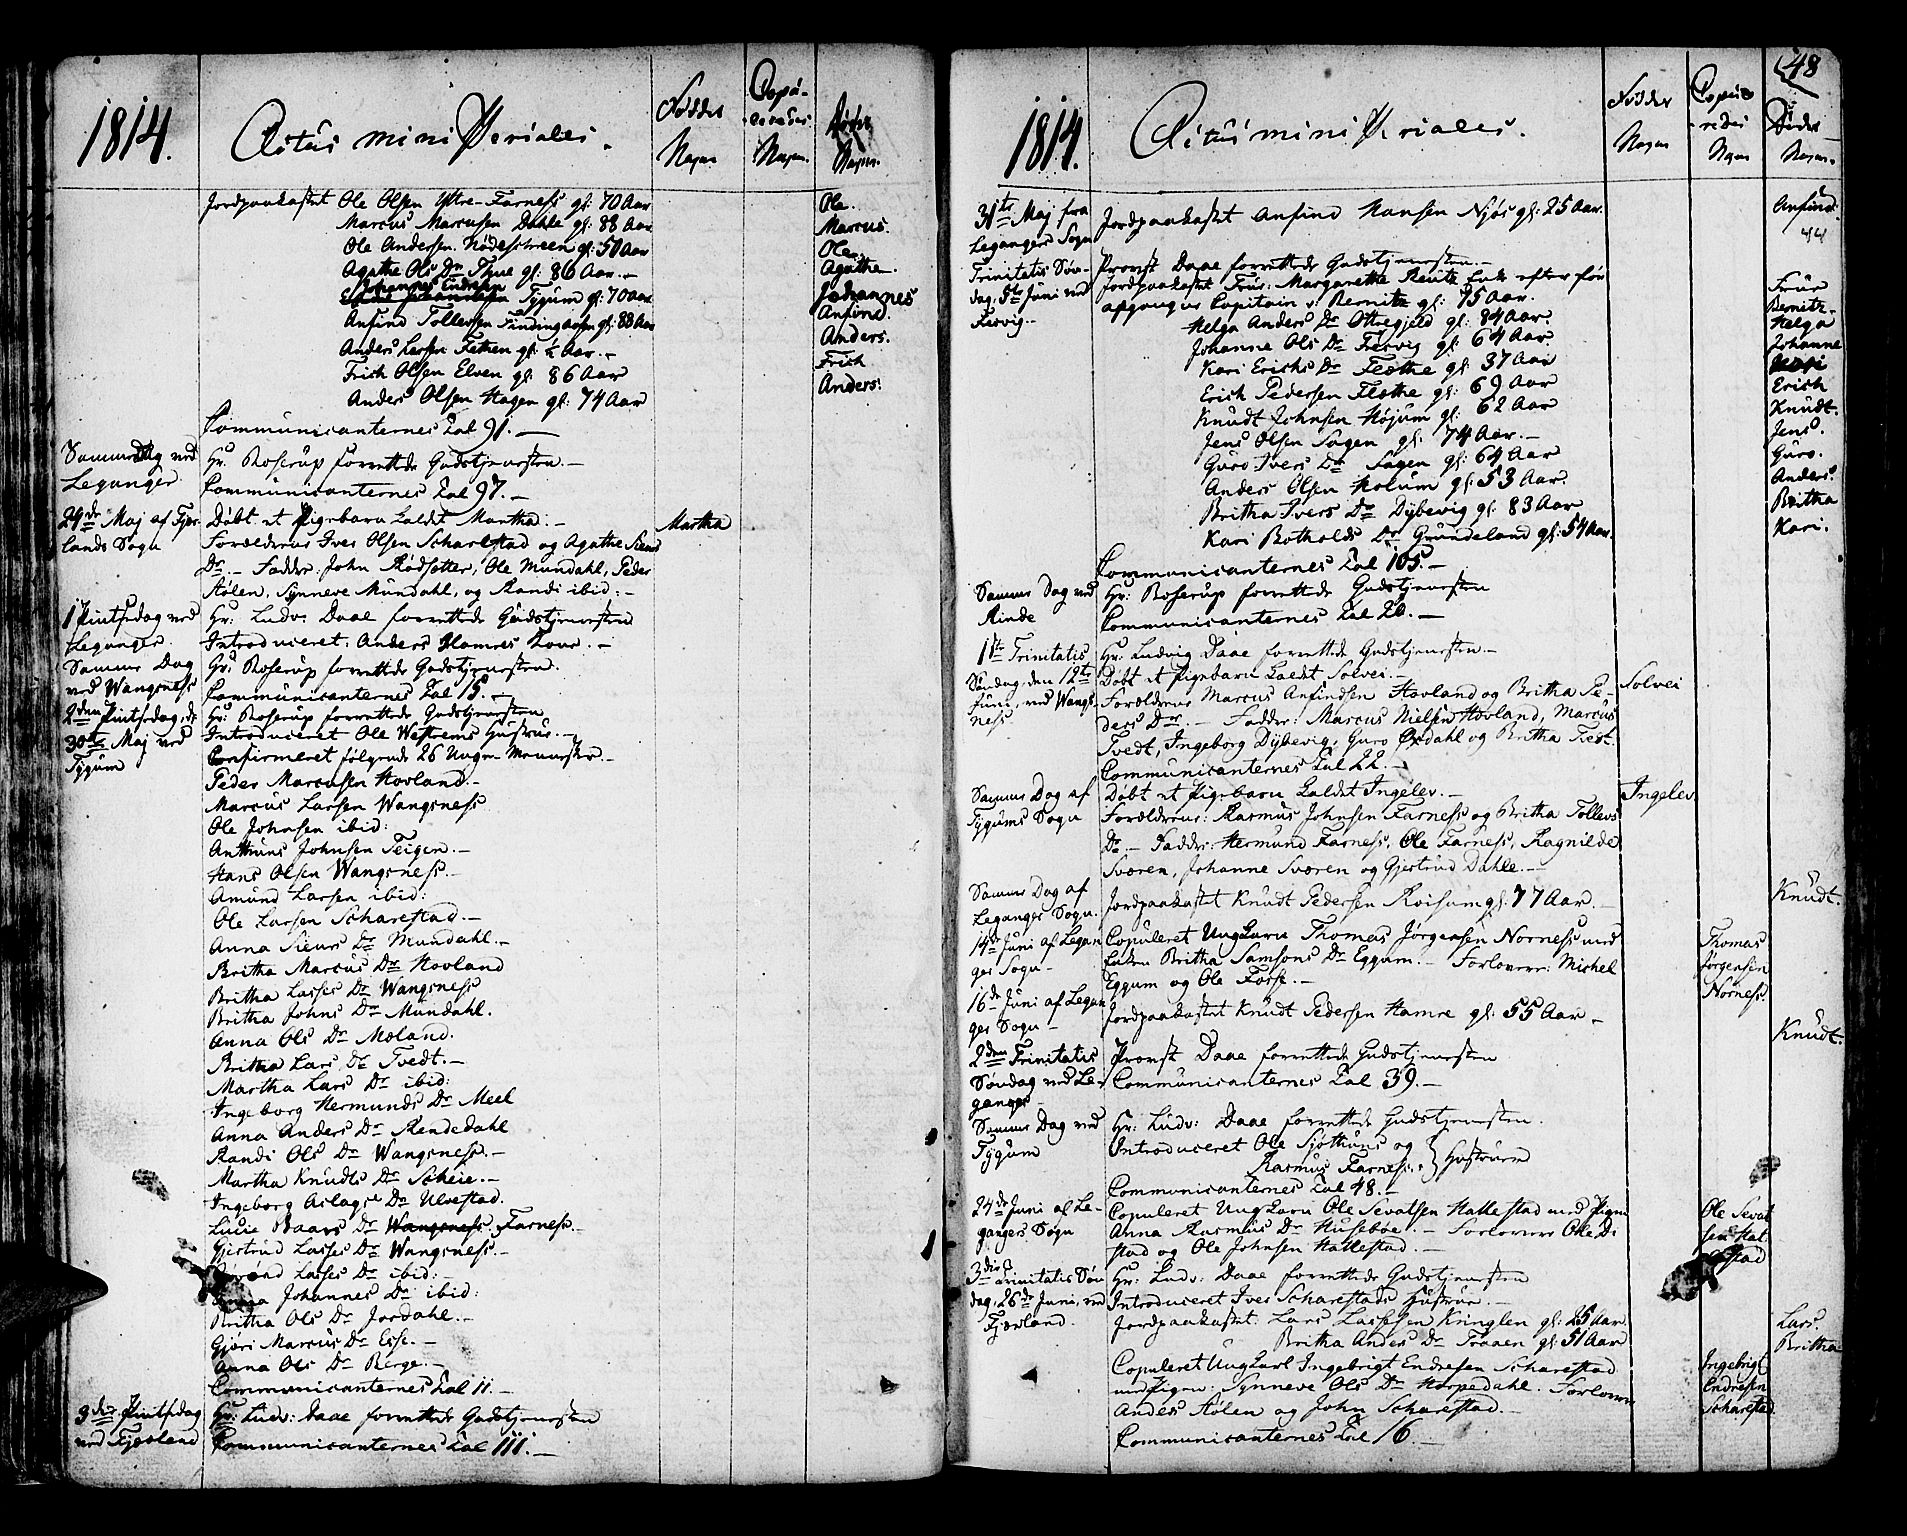 1814.
Actus ministeriales.
Fødde Nagn
Copuleredes Nagn.
Døde Nagn.
Jordpaakastet Ole Olsen Yttre-Farness gl: 70 Aar
Ole.
Marcus Marcusen Dahle gl: 88 Aar
Marcus.
Ole Andersen Nødeschreen gl: 50 Aar
Ole.
Agathe Ols Dr Thue gl: 86 Aar.-
Agathe.
Johannes Endresen Tygum gl: 70 aar
Johannes
Anfind Tollevsen Findingaasen gl: 83 Aar
Anfind.
Anders Larsen Fethen gl: ½ Aar.-
Anders.
Frich Olsen Elven gl: 86 Aar
Frich
Anders Olsen Hagen gl: 74 Aar
Anders.
Communicanternes Tal 91.-
Samme Dag ved
Hr. Roserup forrettede Gudstjenesten.-
Leganger
Communicanternes Tal 97.-
29de Maj af Fjær-
Døbt et Pigebarn kaldet Martha.-
Martha
lands Sogn
Forældrene Iver Olsen Scharestad og Agathe Siurs
Dr.- Fadder: John Rødsetter, Ole Mundahl, Peder
Aølen, Synneve Mundahl, og Randi ibid:-
1 Pintsedag ved
Hr: Ludv: Daae forrettede Gudstjenesten
Leganger
Introduceret: Anders Hamres Kone.-
Samme Dag
Hr: Roserup forrettede Gudstjenesten.
ved Wangsness
Communicanternes Tal 15.-
2den Pintsedag, d:
Hr: Roserup forrettede Gudstjenesten
30te Maj ved
Introduceret Ole Westrems Hustrue.-
Tygum
Confirmeret følgende 26 Unge Mennesker.-
Peder Marcusen Hovland.-
Marcus Larsen Wangsness
Ole Johnsen ibid:
Anthuns Johnsen Teigen.-
Hans Olsen Wangsness.
Amund Larsen ibid:
Ole Larsen Scharestad.-
Anna Siurs Dr Mundahl.-
Britha Marcus Dr Hovland
Britha Lasses Dr Wangsness
Britha Johns Dr Mundahl.
Anna Ols Dr Moland.
Britha Lars Dr Tvedt.-
Martha Lars Dr ibid:
Ingeborg Hermunds Dr Meel
Anna Anders Dr Rendedahl
Randi Ols Dr Wangsness.-
Martha Knudts Dr Scheie.-
Ingeborg Aslags Dr Ulvestad.
Lucie Baars Dr Wangsness Farness.-
Gjertrud Lasses Dr Wangsness.-
Lasses Dr ibid:-
Johannes Dr ibid:
Britha Ols Dr Jordahl.-
Gjøri Marcus Dr Esse.-
Anna Ols Dr Berge.-
Communicanternes Tal 11.-
3die Pintsedag
Hr: Ludv: Daae forrettede Gudstjenesten
ved Fjærland
Communicanternes Tal 111.-
48
1814.
Actus ministeriales.
Fødde Nagn
Copuleredes Nagn
Døde Nagn.
31te Maj fra
Jordpaakastet Anfind Hansen Njøs gl: 25 Aar.
Anfind.
Legangers Sogn
44
Trinitatis Søn-
Provst Daae forrettede Gudstjenesten.-
dag, 5te Juni ved
Jordpaakastet Frue: Margarethe Reutz Enke efter for
Frue
Fresvig.
afgangne Capitain v: Bernitz gl: 75 Aar.
Bernitz.
Helga Anders Dr Ottregjeld gl: 84 Aar.
Helga
Johanne Ols Dr Fresvig gl: 64 Aar
Johanne
Kari Erichs Dr Flethe gl: 37 Aar
Kari
Erich Pedersen Flethe gl: 69 Aar
Erich
Knudt Johnsen Højum gl: 62 Aar
Knudt.
Jens Olsen Sagen gl: 74 Aar.-
Jens.
Guro Ivers Dr Sagen gl: 64 Aar
Guro.
Anders Olsen Holum gl: 53 Aar.
Anders.
Britha Ivers Dr Dybevig gl: 83 Aar
Britha
Kari Botholds Dr Grundeland gl: 54 Aar.
Kari.
Communicanternes Tal 105.-
Samme Dag ved
Hr: Roserup forrettede Gudstjenesten
Rinde
Communicanternes Tal 20.-
1ste Trinitatis
Hr: Ludvig Daae forrettede Gudstjenesten-
Søndag, den 12te
Døbt et Pigebarn kaldet Solvei.-
Solvei
Juni, ved Wangs-
Forældrene Marcus Anfindsen Hovland og Britha Pe-
ness
ders Dr.- Fadder: Marcus Nielsen Hovland, Marcus
Tvedt, Ingeborg Dybevig, Guro Oxdahl og Britha Tvedt.
Communicanternes Tal 22.-
Samme Dag af
Døbt et Pigebarn kaldet Ingelev.-
Ingelev.
Tygums Sogn
Forældrene: Rasmus Johnsen Farness og Britha Tollevs
Dr.- Fadder: Hermund Farness, Ole Farness, Ragnilde
Sværen, Johanne Sværen og Gjertrud Dahle.-
Samme Dag af
Jordpaakastet Knudt Pedersen Roisum gl: 77 Aar.
Knudt.
Leganger Sogn.
14de Juni af Legan
Copuleret Ungkarn Thomas Jørgensen Norness med
Thomas
ger Sogn-
Enken Britha Samsons Dr Eggum.- Forlovere: Michel
Jørgensen
Eggum og Ole Fosse.-
Norness.
16de Juni af Legan
ger Sogn-
Jordpaakastet Knudt Pedersen Hamre gl: 55 Aar.-
Knudt.
2den Trinitatis
Provst Daae forrettede Gudstjenesten
Søndag ved Le-
Communicanternes Tal 39.-
ganger
Samme Dag ved
Hr: Ludv: Daae forrettede Gudstjenesten.
Tygum
Introduceret Ole Sjøthuns og
Rasmus Farness: } Hustruer
Communicanternes Tal 48.-
24de Juni af Le-
Copuleret Ungkarn Ole Sevatsen Hallestad med Pigen
Ole Sevat
gangers Sogn
Anna Rasmus Dr Husebøe.- Forlovere Ole Di-
sen Hal
stad og Ole Johnsen Hallestad.-
estad
3die Trinitatis Søn
Hr: Ludv: Daae forrettede Gudstjenesten
dag, 26de Juni, ved
Introduceret Iver Scharestads Hustrue.-
Fjærland.
Jordpaakastet: Lars Lassesen Kringlen gl: 25 Aar
Lars.
Britha Andes Dr Traaen gl: 51 Aar
Britha
Copuleret Ungkarl Ingebrigt Endresen Scharestad
Ingebrigt
med Pigen: Synneve Ols Dr Horpedahl. Forlovere
Endresen
Andes Aølen og John Scharestad.-
Scharestad.
Communicanternes Tal 16.-